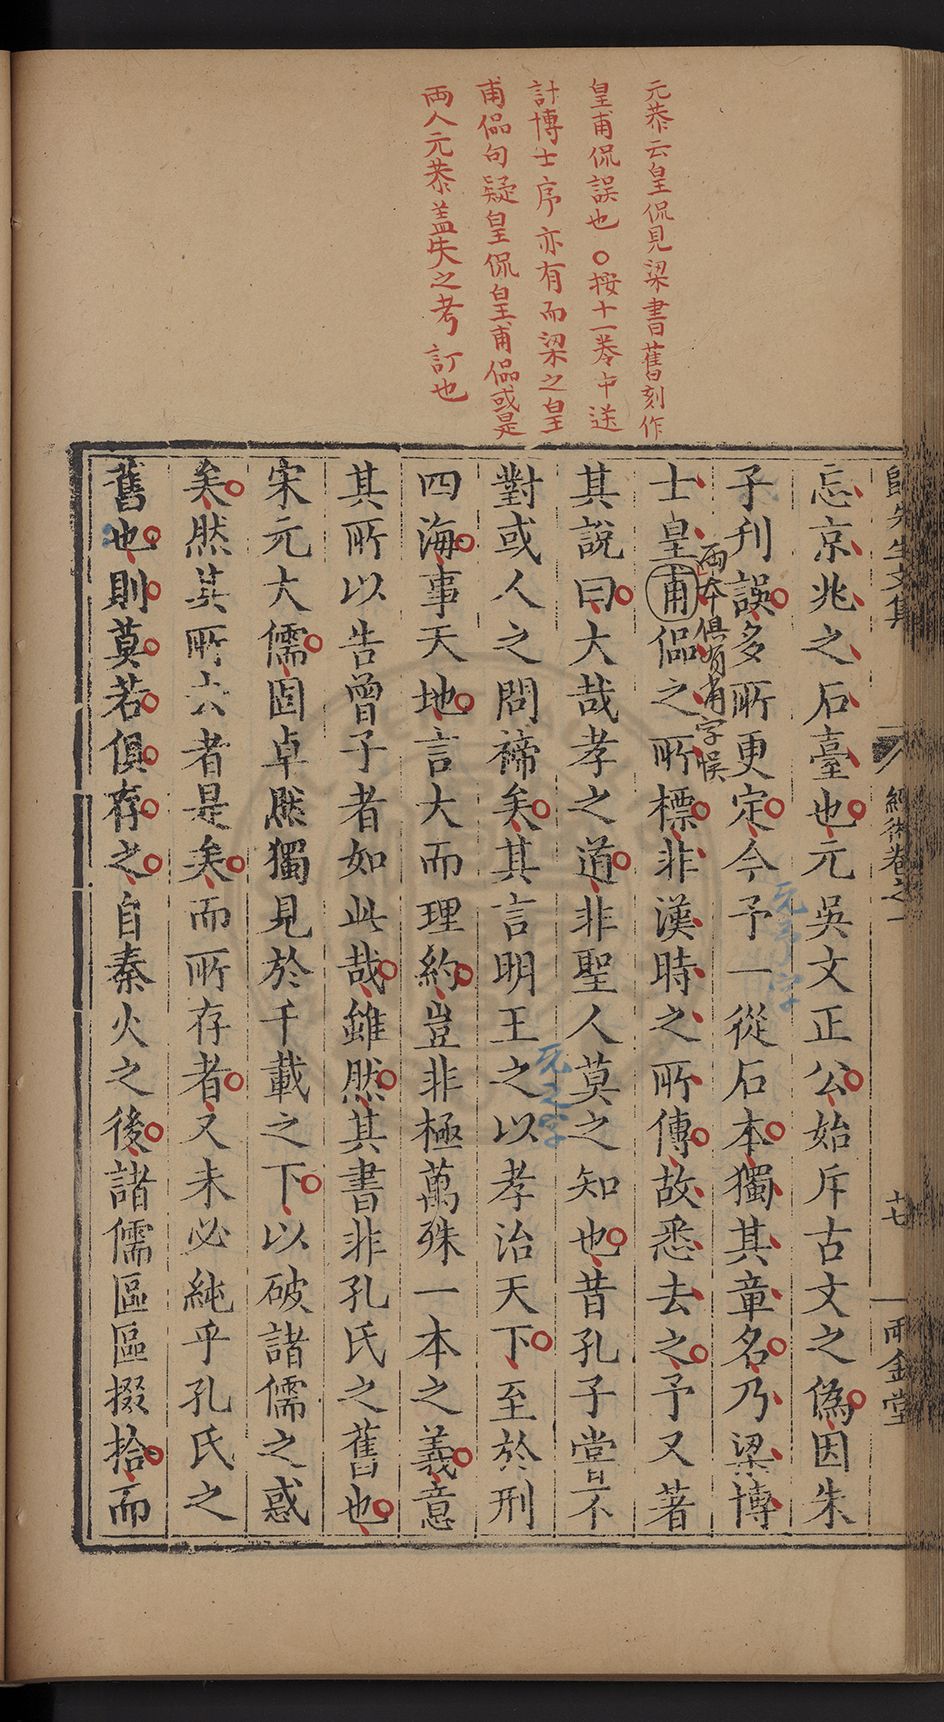 元恭云皇侃見梁書舊刻作
皇甫侃誤也〇按十一卷中送
計博士序亦有而梁之皇
甫偘句疑皇侃皇甫偘或是
兩人元恭蓋失之考訂也
忘京兆之石臺也元吳文正公始斥古文之偽因朱
子刊誤多所更定今予一從石本獨其章名乃梁博
元予字
士皇甫偘之所標非漢時之所傳故悉去之予又著
兩本俱有甫字誤
其說曰大哉孝之道非聖人莫之知也昔孔子嘗不
對或人之問禘矣其言明王之以孝治天下至於刑
元之字
四海事天地言大而理約豈非極萬殊一本之義意
其所以告曾子者如此哉雖然其書非孔氏之舊也
宋元大儒固卓然獨見於千載之下以破諸儒之惑
矣然其所去者是矣而所存者又未必純乎孔氏之
舊也則莫若俱存之自秦火之後諸儒區區掇拾而